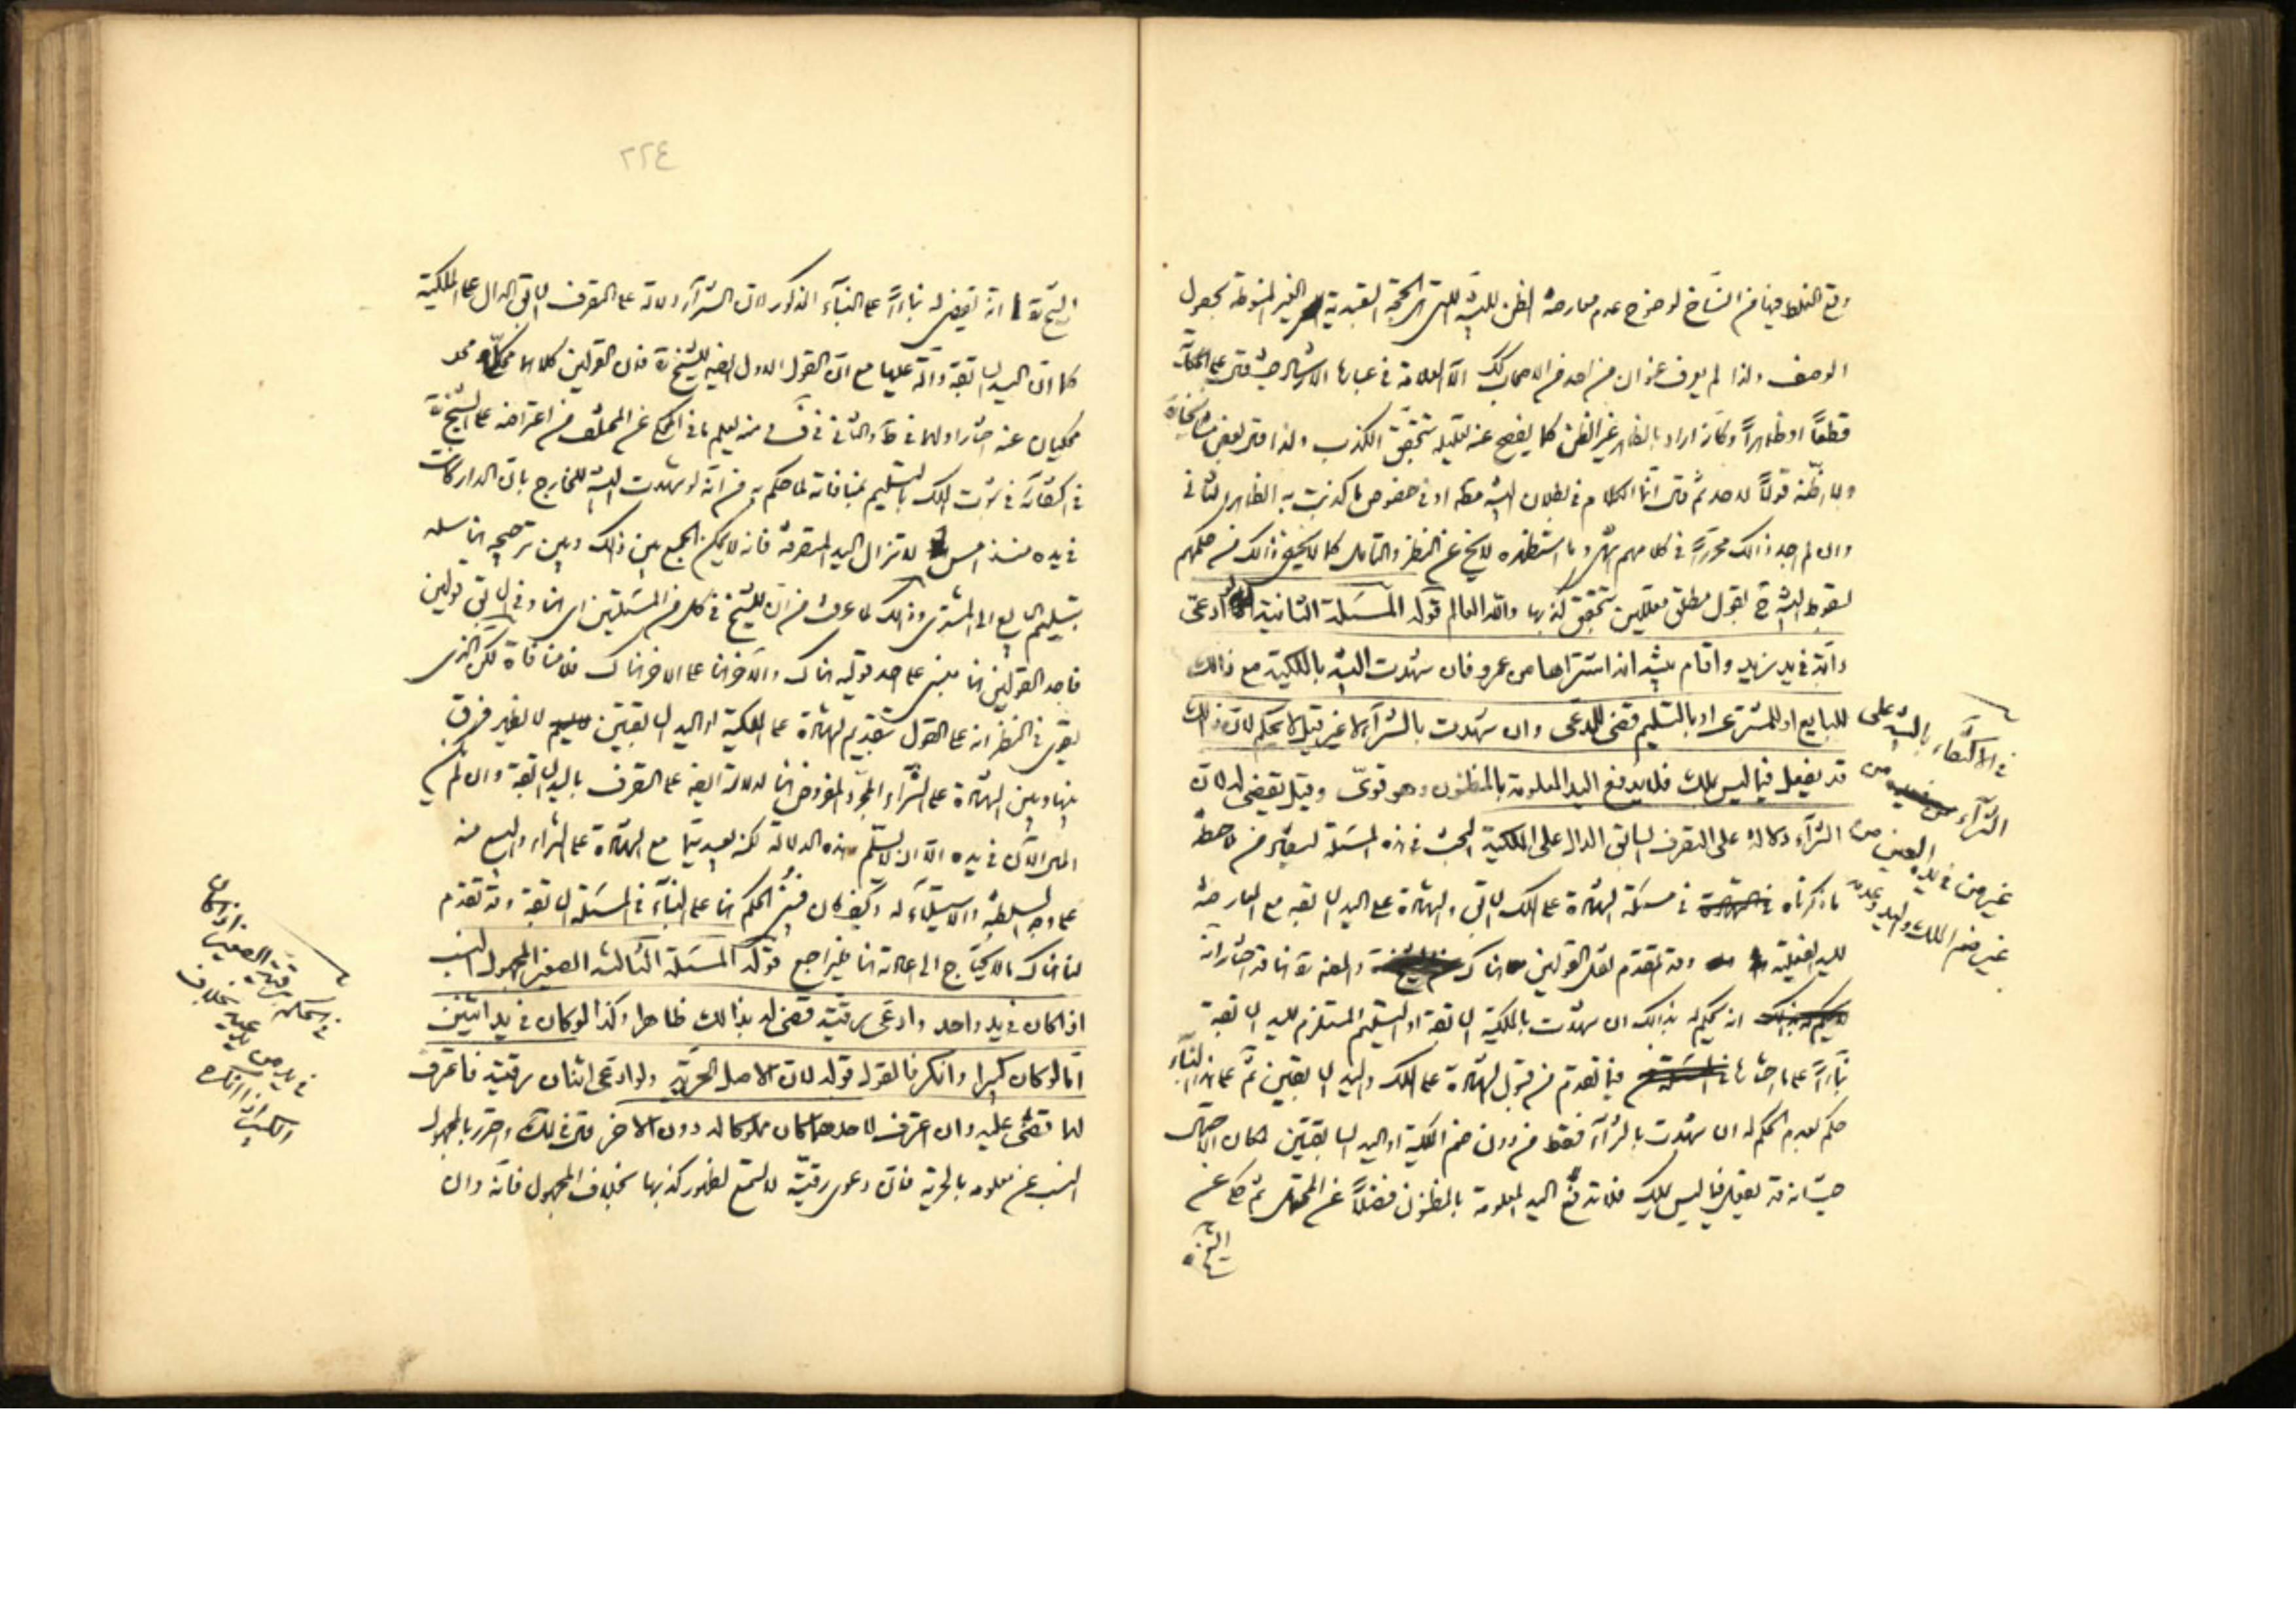 وقع الغلط فيها من النساخ لوضوح عدم معارضة الظن للبينة التي هي الحجة التعبدية الغير المنوطة بحصول
الوصف ولذا لم يعرف عنوان من احد من الاصحاب لذلك الا العلامة في عبارة الارشاد حيث قال
قطعاً او ظاهراً وكأنه اراد بالظاهر غير الظن كما يفصح عنه تعليله بتحقق الكذب ولذا قال بعض
قولاً لاحد ثم قال انما الكلام في بطلان البينة مطلقا او في خصوص ما كذبت به الظاهر الثاني
وان لم اجد ذالك محرراً في كلامهم وما استظهره لا يخ عن النظر والتأمل كما لا يخفى ذالك من حكمهم
بسقوط البينة ح بقول مطلق معللين بتحقق كذبها والله العالم قوله المسئلة الثانية لو ادعى
دابة في يد زيد واقام بينة انه اشتراها من عمرو فان شهدت البينة بالملكية مع ذالك
للبايع او للمشترى او بالتسليم قضى للمدعى وان شهدت بالشراء لا غير قيل لا يحكم لان ذلك
قد يفعل فيما ليس بملك فلا يدفع اليد المعلومة بالمظنون وهو قوى وقيل يقضى له لان
الشراء دلالة على التصرف السابق الدال على الملكية البحث في هذه المسئلة
ما ذكرناه في مسئلة الشهادة على الملك السابق والشهادة على اليد السابقة مع المعارضة
لليد الفعلية وقد تقدم نقل القولين هناك والمصنف هنا قد اختار
انه يحكم له بذالك ان شهدت بالملكية السابقة او التسليم المستلزم لليد السابقة
بناءاً على ما اختاره فيما تقدم من قبول الشهادة على الملك واليد السابقين ثم على هذا البناء
حكم بعدم الحكم له ان شهدت بالشراء فقط من دون ضم الملكية او اليد السابقتين لمكان الاحتمال
حيث انه قد يفعل فيما ليس بملك فلا تدفع اليد المعلومة بالمظنون فضلاً عن المحتمل ثم حكى عن
الشيخ ره
في الاكتفاء بالبينة على
الشراء من
غير من في يده العين من
غير ضم الملك واليد وعدمه
٢٢٤
الشيخ ره انه يقضى له بناءاً على البناء المذكور لان الشراء دلالة على التصرف السابق الدال على الملكية
كما ان اليد السابقة دالة عليها مع ان القول الاول ايضا للشيخ ره فان القولين كلاهما
محكيان عنه اختار اولهما في ط والثاني في ف ومنه يعلم ما في المحكى عن المختلف من اعتراضه على الشيخ ره
في اكتفائه في ثبوت الملك بالتسليم بمنافاته لما حكم به من انه لو شهدت البينة للخارج بان الدار كانت
في يده منذ امس لا تزال اليد المتصرفة فانه لا يمكن الجمع بين ذالك وبين ترجيحه هنا
بتسليم البايع الى المشترى وذالك لما عرفت من ان للشيخ في كل من المسئلتين اي هنا وفي السابق قولين
فاحد القولين هنا مبنى على احد قوليه هناك والآخر هنا على الاخر هناك فلا منافاة لكن الذى
يقوى في النظر انه على القول بتقديم الشهادة على الملكية او اليد السابقتين لا يظهر فرق
بينها وبين الشهادة على الشراء المجرد المفروض هنا لدلالة ايضا على التصرف باليد السابقة وان لم
العين الآن في يده الا ان لا يسلم هذه الدلالة لكنه بعيد سيما مع الشهادة على الشراء والبيع منه
على وجه السلطنة والاستيلاء له وكيف كان فيبنى الحكم هنا على البناء في المسئلة السابقة وقد تقدم
لنا هناك ما لا يحتاج الى اعادته هنا فليراجع قوله المسئلة الثالثة الصغير المجهول النسب
اذا كان في يد واحد وادعى رقيته قضى له بذالك ظاهرا وكذا لو كان في يد اثنين
اما لو كان كبيرا وانكر فالقول قوله لان الاصل الحرية ولو ادعى اثنان رقيته فاعترف
لهما قضى عليه وان اعترف لاحدهما كان مملوكا له دون الاخر قال في لك واحترز بالمجهول
النسب عن معلومه بالحرية فان دعوى رقيته لا تسمع لظهور كذبها بخلاف المجهول فانه وان
في الحكم برقية الصغير اذا كان
في يد من يدعيه بخلاف
الكبير اذا انكره